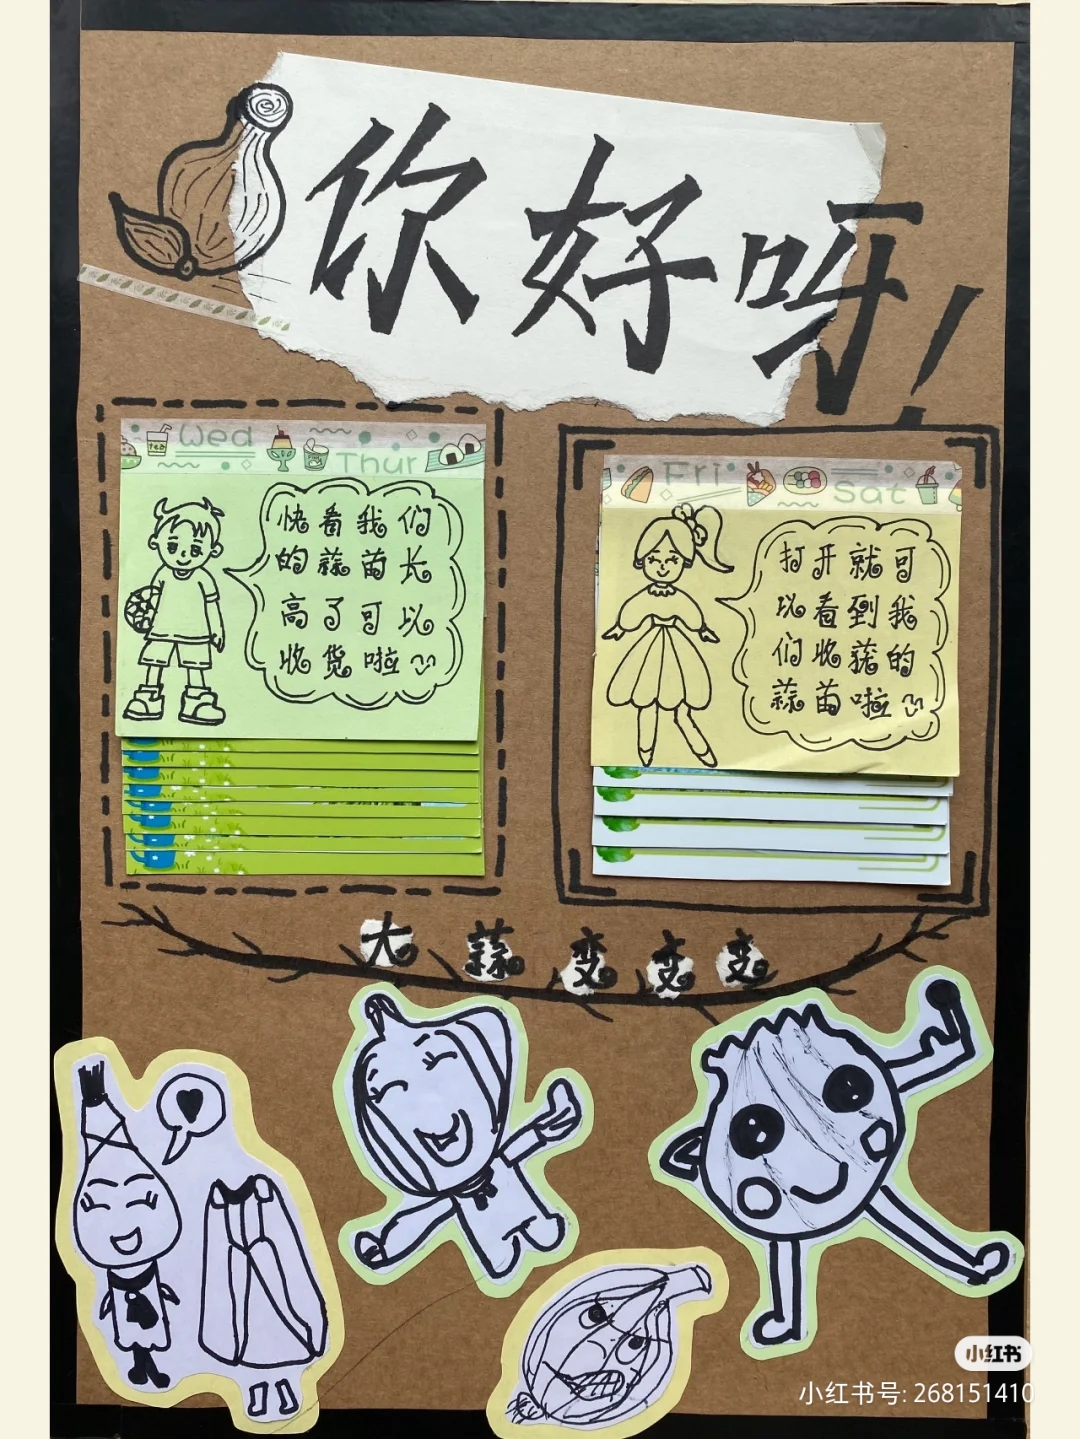 你好呀！
Wed
Thur
快看我们
的蒜苗长
高了可以
收货啦
Fri
Sat
打开就可
以看到我
们收获的
蒜苗啦
大蒜变变变
小红书
小红书号: 268151410